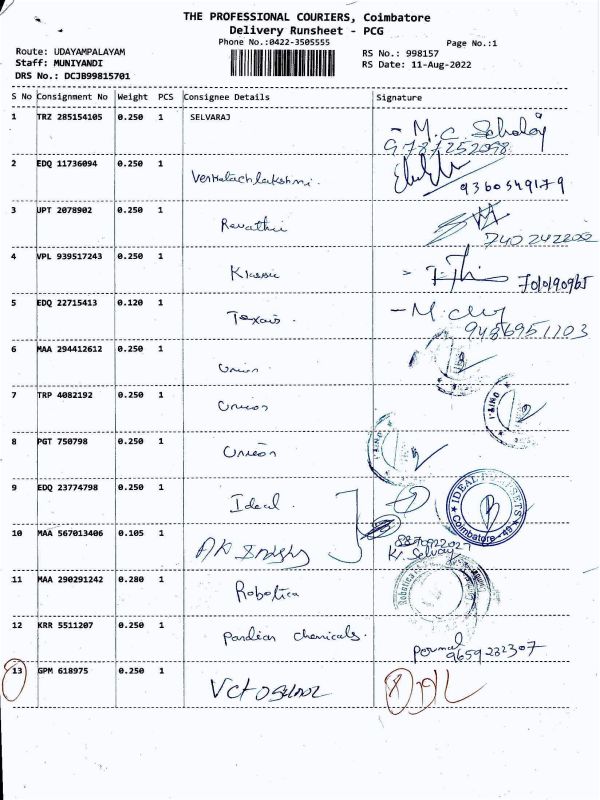 THE PROFESSIONAL COURIERS, Coimbatore
Delivery Runsheet - PCG
Phone No.:0422-3505555
Page No.:1
Route: UDAYAMPALAYAM
RS No.: 998157
Staff: MUNIYANDI
RS Date: 11-Aug-2022
DRS No.: DCJB99815701
S No Consignment No Weight PCS Consignee Details Signature
1 TRZ 285154105 0.250 1 SELVARAJ
- M.C.
9787252098
2 EDQ 11736094 0.250 1 Venkatachlakshmi.
9360549179
3 UPT 2078902 0.250 1 Revathi
740242202
4 VPL 939517243 0.250 1 Klassic
5 EDQ 22715413 0.120 1 Texais.
- M.
9486951103
6 MAA 294412612 0.250 1 Union
7 TRP 4082192 0.250 1 Union
8 PGT 750798 0.250 1 Union
9 EDQ 23774798 0.250 1 Ideal.
IDEAL
Coimbatore - 49
10 MAA 567013406 0.105 1 AK
K. Selvaj
11 MAA 290291242 0.280 1 Robotica
Robotica
12 KRR 5511207 0.250 1 Pandian Chemicals.
Perumal
9659232307
13 GPM 618975 0.250 1